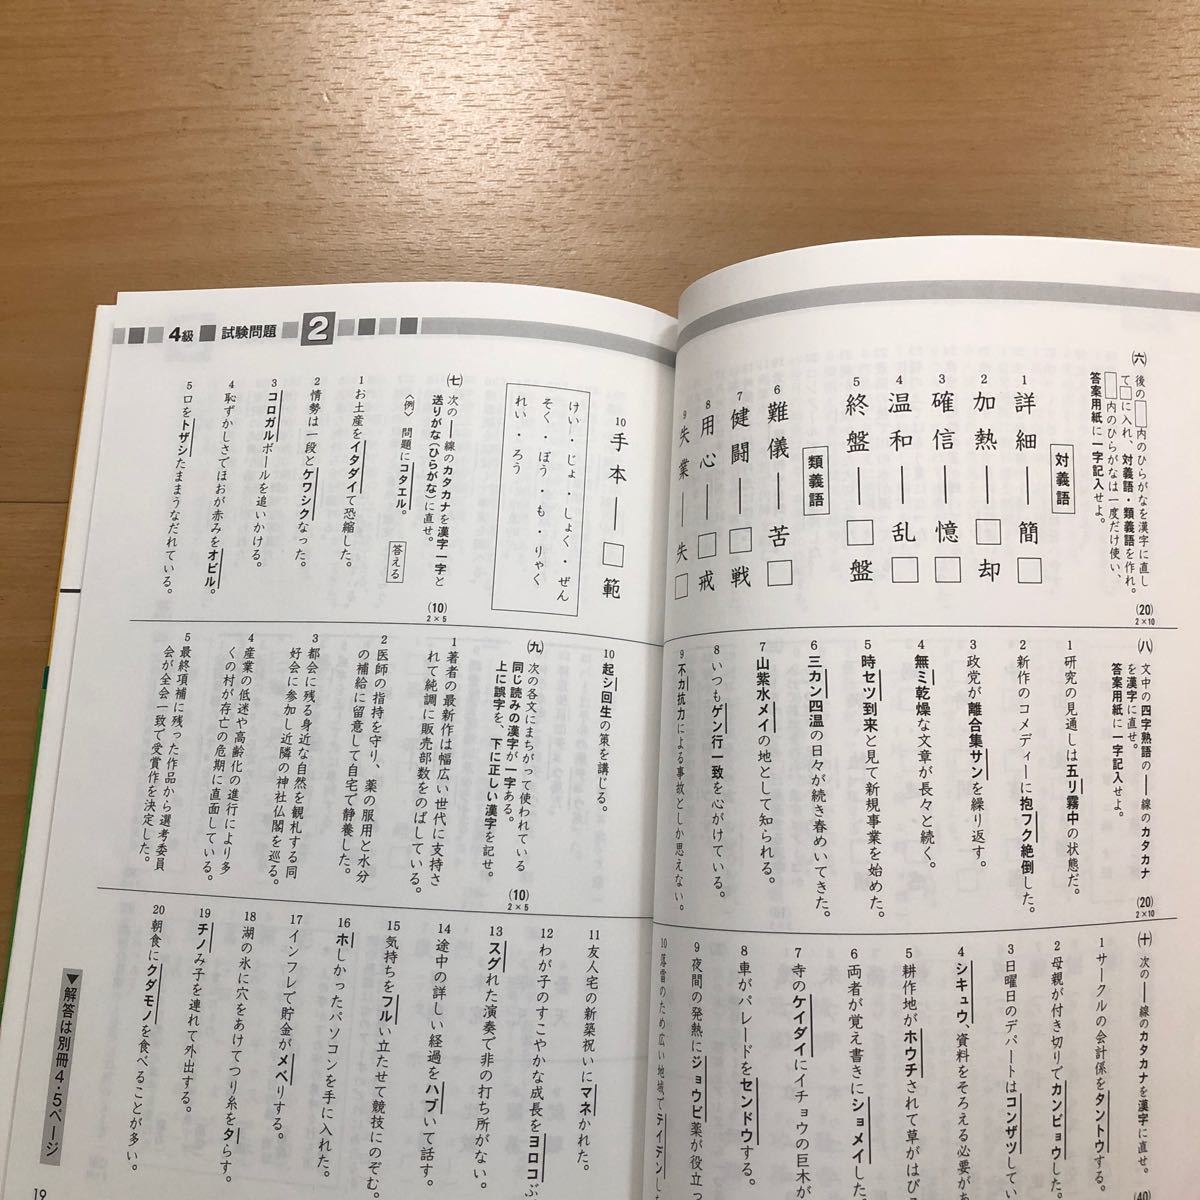 4級 試験問題 2
(六) 後の□内のひらがなを漢字に直し
て□に入れ、対義語・類義語を作れ。
□内のひらがなは一度だけ使い、
答案用紙に一字記入せよ。
(20)
2×10
対義語
1 詳細―簡□
2 加熱―□却
3 確信―憶□
4 温和―乱□
5 終盤―□盤
類義語
6 難儀―苦□
7 健闘―□戦
8 用心―□戒
9 失業―失□
10 手本―□範
けい・じょ・しょく・ぜん
そく・ぼう・も・りゃく
れい・ろう
(七) 次の―線のカタカナを漢字一字と
送りがな(ひらがな)に直せ。
〈例〉 問題にコタエル。 答える
(10)
2×5
1 お土産をイタダイて恐縮した。
2 情勢は一段とケワシクなった。
3 コロガルボールを追いかける。
4 恥ずかしさでほおが赤みをオビル。
5 口をトザシたままうなだれている。
(八) 文中の四字熟語の―線のカタカナ
を漢字に直せ。
答案用紙に一字記入せよ。
(20)
2×10
1 研究の見通しは五リ霧中の状態だ。
2 新作のコメディーに抱フク絶倒した。
3 政党が離合集サンを繰り返す。
4 無ミ乾燥な文章が長々と続く。
5 時セツ到来と見て新規事業を始めた。
6 三カン四温の日々が続き春めいてきた。
7 山紫水メイの地として知られる。
8 いつもゲン行一致を心がけている。
9 不カ抗力による事故としか思えない。
10 起シ回生の策を講じる。
(九) 次の各文にまちがって使われている
同じ読みの漢字が一字ある。
上に誤字を、下に正しい漢字を記せ。
(10)
2×5
1 著者の最新作は幅広い世代に支持さ
れて純調に販売部数をのばしている。
2 医師の指持を守り、薬の服用と水分
の補給に留意して自宅で静養した。
3 都会に残る身近な自然を観札する同
好会に参加し近隣の神社仏閣を巡る。
4 産業の低迷や高齢化の進行により多
くの村が存亡の危期に直面している。
5 最終項補に残った作品から選考委員
会が全会一致で受賞作を決定した。
(十) 次の―線のカタカナを漢字に直せ。
(40)
1 サークルの会計係をタントウする。
2 母親が付き切りでカンビョウした。
3 日曜日のデパートはコンザツしてい
4 シキュウ、資料をそろえる必要があ
5 耕作地がホウチされて草がはびこ
6 両者が覚え書きにショメイした。
7 寺のケイダイにイチョウの巨木が
8 車がパレードをセンドウする。
9 夜間の発熱にジョウビ薬が役立っ
10 落雷のため広い地域でテイデンした
11 友人宅の新築祝いにマネかれた。
12 わが子のすこやかな成長をヨロコぶ
13 スグれた演奏で非の打ち所がない。
14 途中の詳しい経過をハブいて話す。
15 気持ちをフルい立たせて競技にのぞむ。
16 ホしかったパソコンを手に入れた。
17 インフレで貯金がメベりする。
18 湖の氷に穴をあけてつり糸をタらす。
19 チノみ子を連れて外出する。
20 朝食にクダモノを食べることが多い。
▼解答は別冊4・5ページ
19